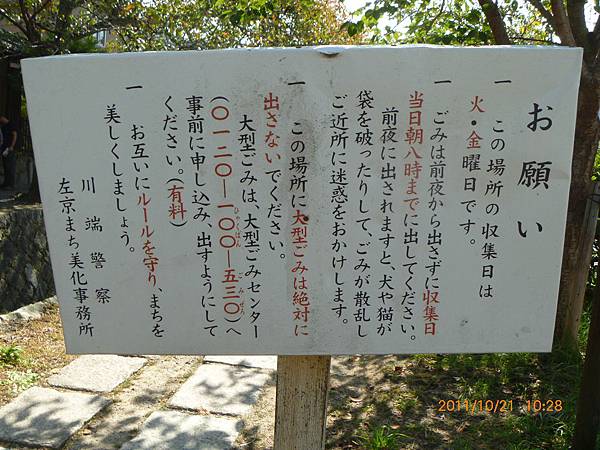 お願い
一 この場所の収集日は
火・金曜日です。
一 ごみは前夜から出さずに収集日
当日朝八時までに出してください。
前夜に出されますと、犬や猫が
袋を破ったりして、ごみが散乱し
ご近所に迷惑をおかけします。
一 この場所に大型ごみは絶対に
出さないでください。
大型ごみは、大型ごみセンター
(〇一二〇―一〇〇―五三〇)へ
事前に申し込み、出すようにして
ください。(有料)
一 お互いにルールを守り、まちを
美しくしましょう。
川端警察
左京まち美化事務所
2011/10/21 10:28